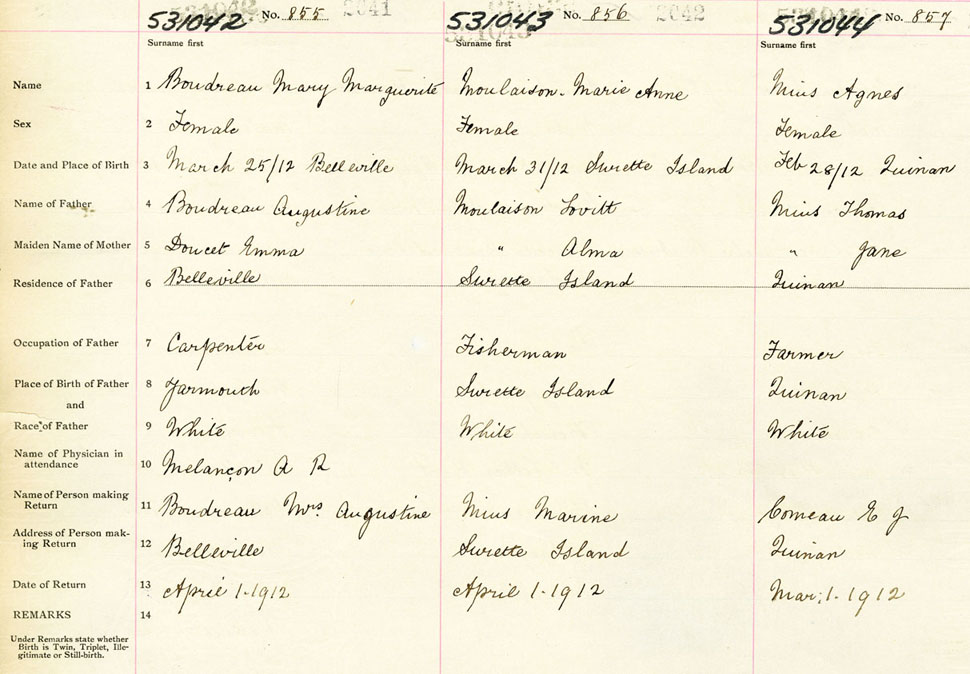 531042 No. 855 2041 531043 No. 856 2042 531044 No. 857
Surname first Surname first Surname first
Name 1 Boudreau Mary Marguerite Moulaison. Marie Anne Mius Agnes
Sex 2 Female Female Female
Date and Place of Birth 3 March 25/12 Belleville March 31/12 Surette Island Feb 28/12 Quinan
Name of Father 4 Boudreau Augustine Moulaison Lovitt Mius Thomas
Maiden Name of Mother 5 Doucet Emma " Alma " Jane
Residence of Father 6 Belleville Surette Island Quinan
Occupation of Father 7 Carpenter Fisherman Farmer
Place of Birth of Father 8 Yarmouth Surette Island Quinan
and
Race of Father 9 White White White
Name of Physician in
attendance 10 Melançon A R
Name of Person making
Return 11 Boudreau Mrs Augustine Mius Marine Comeau E J
Address of Person mak-
ing Return 12 Belleville Surette Island Quinan
Date of Return 13 April 1-1912 April 1-1912 Mar; 1-1912
REMARKS 14
Under Remarks state whether
Birth is Twin, Triplet, Ille-
gitimate or Still-birth.